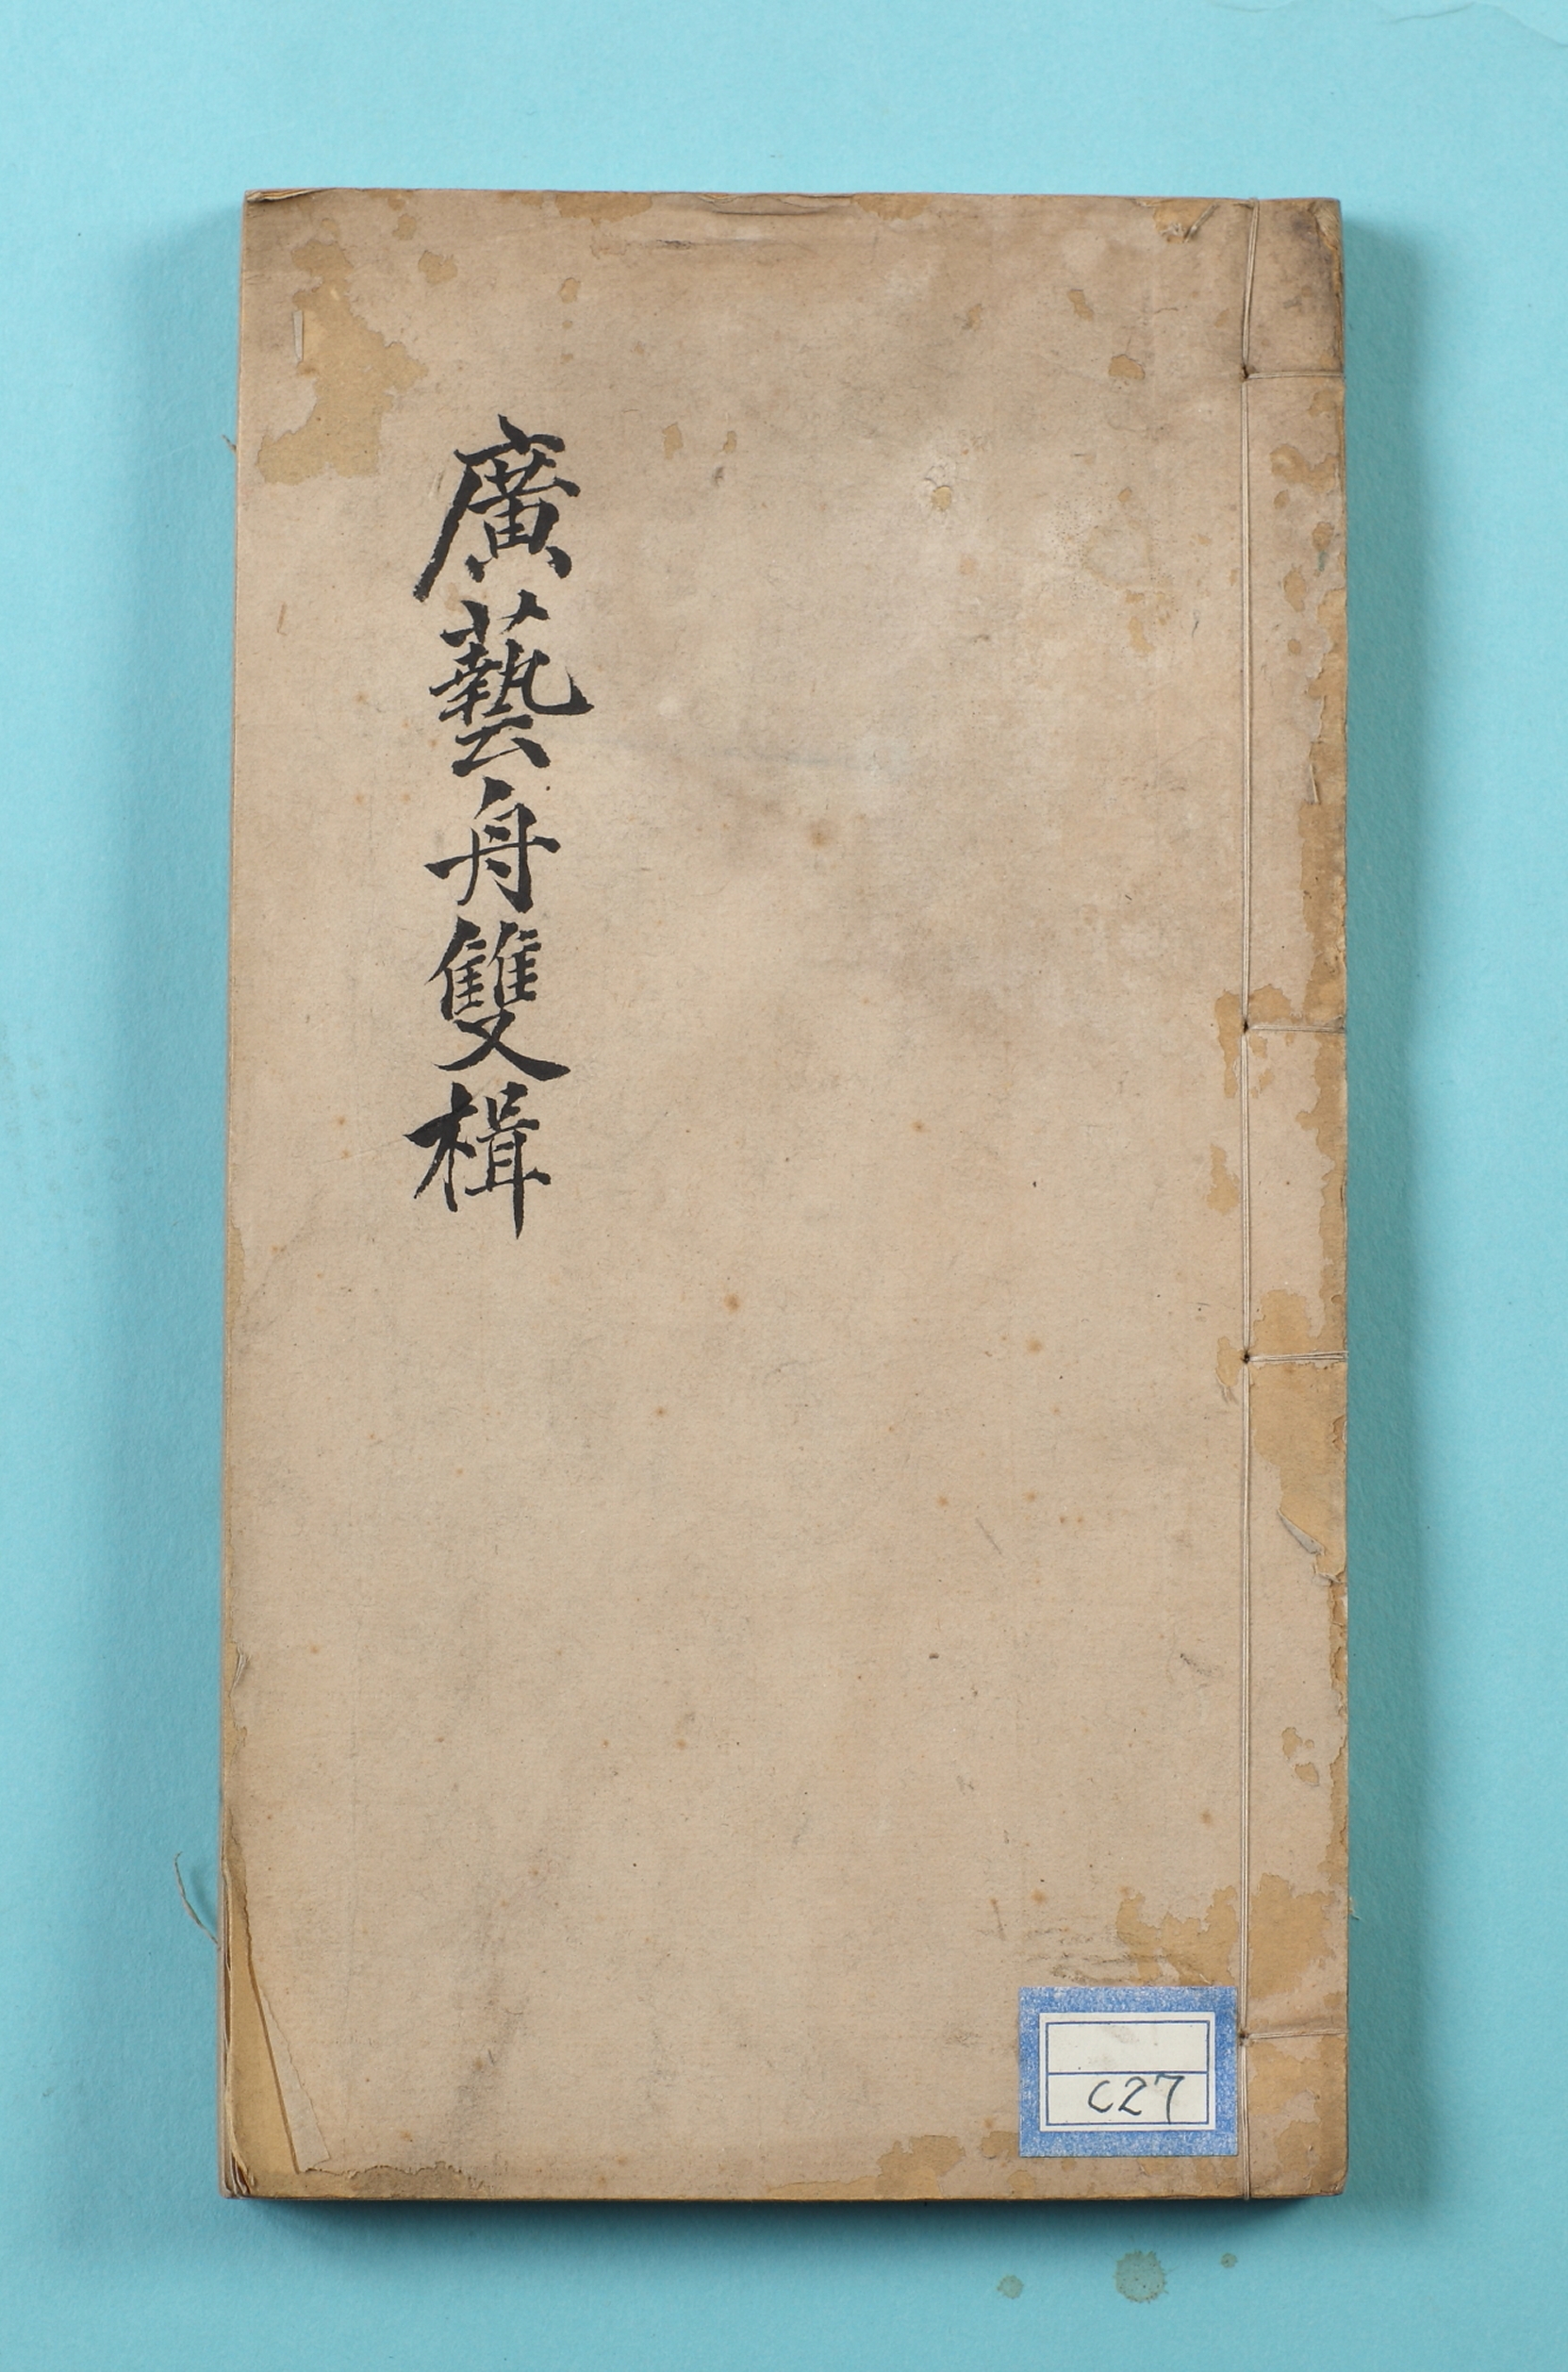 廣藝舟雙楫
C27